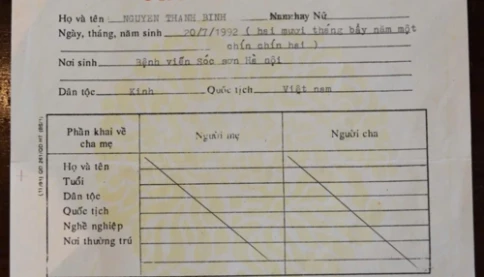 Họ và tên : NGUYEN THANH BINH Nam hay Nữ
Ngày, tháng, năm sinh 20/7/1992 ( hai mươi tháng bẩy năm một
chín chín hai )
Nơi sinh Bệnh viển Sóc sơn Hà nội
Dân tộc Kinh Quốc tịch Việt nam
Phần khai về cha mẹ Người mẹ Người cha
Họ và tên
Tuổi
Dân tộc
Quốc tịch
Nghề nghiệp
Nơi thường trú